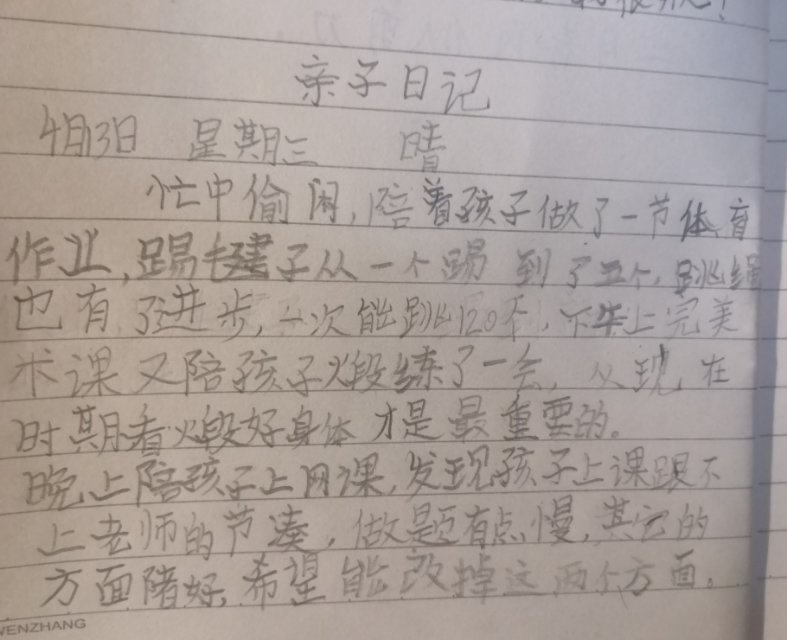 亲子日记
4月3日 星期三 晴
忙中偷闲,陪着孩子做了一节体育
作业,踢毽子从一个踢到了五个,跳绳
也有了进步,一次能跳120个,下午上完美
术课又陪孩子火段练了一会,从现在
时期看火段好身体才是最重要的。
晚上陪孩子上网课,发现孩子上课跟不
上老师的节凑,做题有点慢,其它的
方面陪好,希望能改掉这两个方面。
WENZHANG